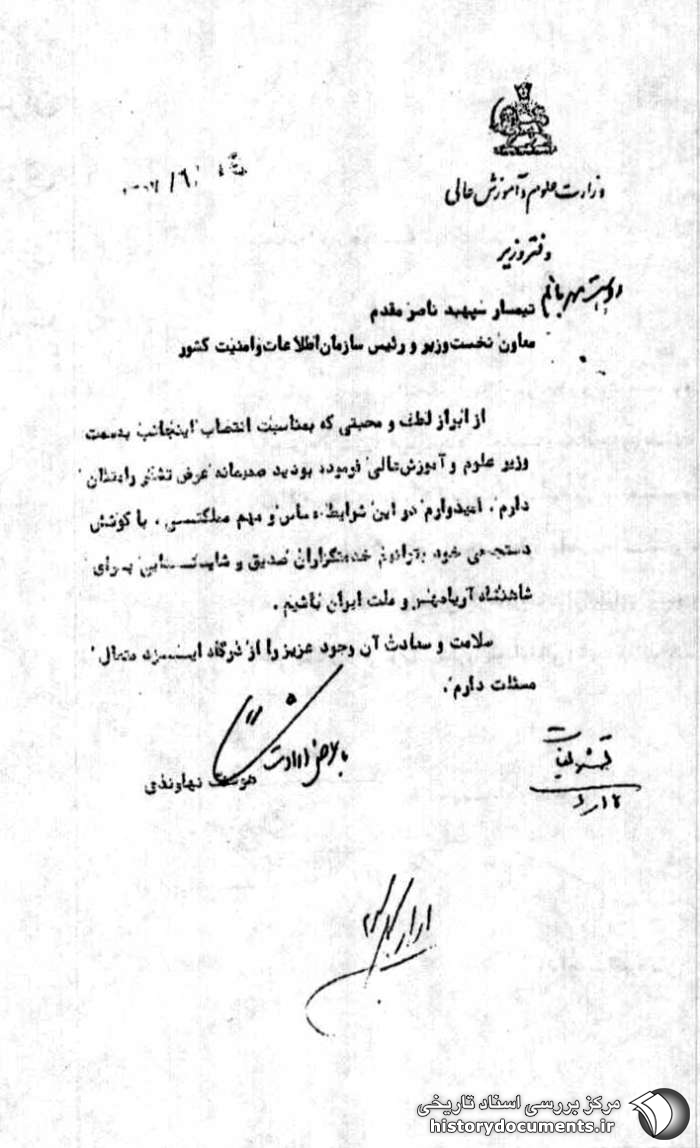 وزارت علوم و آموزش عالی
دفتر وزیر
دوست مهربانم
تیمسار سپهبد ناصر مقدم
معاون نخست‌وزیر و رئیس سازمان اطلاعات و امنیت کشور
از ابراز لطف و محبتی که بمناسبت انتصاب اینجانب بسمت
وزیر علوم و آموزش عالی فرموده بودید صمیمانه عرض تشکر و امتنان
دارم. امیدوارم در این شرایط حساس و مهم مملکتی، با کوشش
دستجمعی خود بتوانیم خدمتگزاران صدیق و شایسته‌ای برای
شاهنشاه آریامهر و ملت ایران باشیم.
سلامت و سعادت آن وجود عزیز را از درگاه ایزد متعال
مسئلت دارم.
با عرض ارادت
هوشنگ نهاوندی
مرکز بررسی اسناد تاریخی
historydocuments.ir